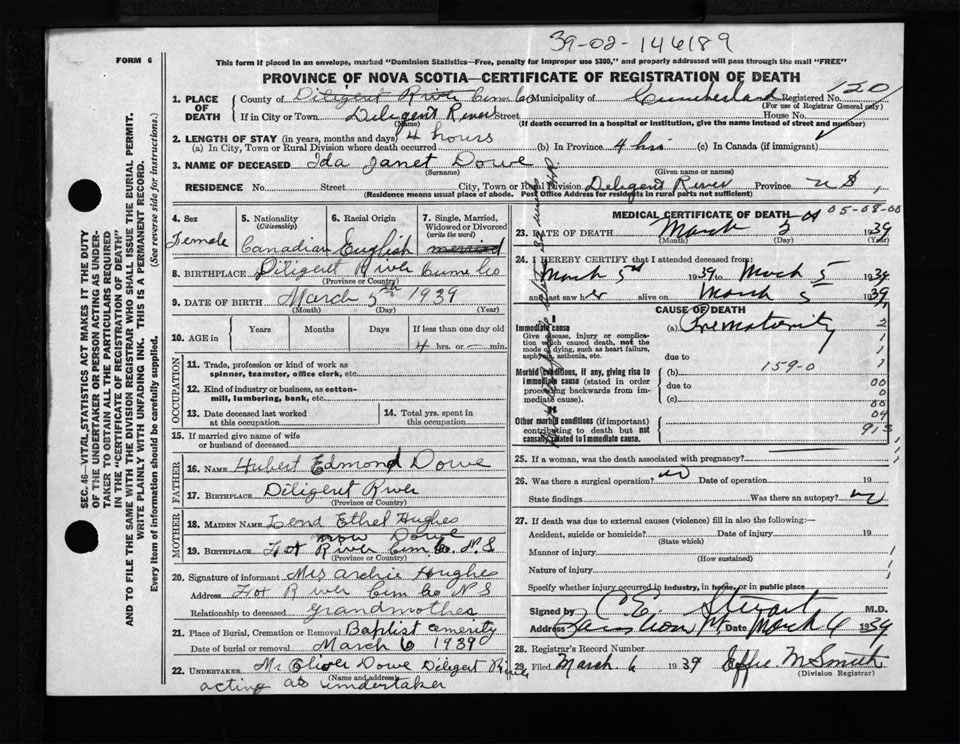 39-02-146189
FORM 6
This form if placed in an envelope, marked "Dominion Statistics—Free, penalty for improper use $300," and properly addressed will pass through the mail "FREE"
PROVINCE OF NOVA SCOTIA—CERTIFICATE OF REGISTRATION OF DEATH
1. PLACE OF DEATH
County of Diligent River Cum Co Municipality of Cumberland Registered No. 120
(For use of Registrar General only)
If in City or Town Diligent River Street House No.
(Name)
(If death occurred in a hospital or institution, give the name instead of street and number)
2. LENGTH OF STAY (in years, months and days) 4 hours
(a) In City, Town or Rural Division where death occurred (b) In Province 4 hrs (c) In Canada (if immigrant)
3. NAME OF DECEASED Ida Janet Dowe
(Surname) (Given name or names)
RESIDENCE No. Street City, Town or Rural Division Deligent River Province N S
(Residence means usual place of abode. Post Office Address for residents in rural parts not sufficient)
4. Sex
Female
5. Nationality
(Citizenship)
Canadian
6. Racial Origin
English
7. Single, Married, Widowed or Divorced
(write the word)
married
8. BIRTHPLACE Diligent River Cum Co
(Province or Country)
9. DATE OF BIRTH March 5th 1939
(Month) (Day) (Year)
10. AGE in
Years Months Days If less than one day old
4 hrs. or — min.
OCCUPATION
11. Trade, profession or kind of work as spinner, teamster, office clerk, etc.
12. Kind of industry or business, as cotton-mill, lumbering, bank, etc.
13. Date deceased last worked at this occupation
14. Total yrs. spent in this occupation
15. If married give name of wife or husband of deceased
FATHER
16. NAME Hubert Edmond Dowe
17. BIRTHPLACE Diligent River
(Province or Country)
MOTHER
18. MAIDEN NAME Lena Ethel Hughes
now Dowe
19. BIRTHPLACE Fox River Cum Co. N.S
(Province or Country)
20. Signature of informant Mrs Archie Hughes
Address Fox River Cum Co N S
Relationship to deceased grandmother
21. Place of Burial, Cremation or Removal Baptist
Date of burial or removal March 6 1939
22. UNDERTAKER Mr Oliver Dowe Diligent River
(Name and address)
acting as undertaker
MEDICAL CERTIFICATE OF DEATH
05-08-00
23. DATE OF DEATH March 5 1939
(Month) (Day) (Year)
24. I HEREBY CERTIFY that I attended deceased from:
March 5th 1939 to March 5 1939
and last saw her alive on March 5 1939
CAUSE OF DEATH
I
Immediate cause (a) Prematurity
Give disease, injury or complication which caused death, not the mode of dying, such as heart failure, asphyxia, asthenia, etc.
due to
Morbid conditions, if any, giving rise to immediate cause (stated in order proceeding backwards from immediate cause).
(b) 159-0
due to
(c)
II
Other morbid conditions (if important) contributing to death but not causally related to immediate cause.
2
1
1
1
00
0
00
04
913
25. If a woman, was the death associated with pregnancy?
26. Was there a surgical operation? no Date of operation 19
State findings Was there an autopsy? no
27. If death was due to external causes (violence) fill in also the following:—
Accident, suicide or homicide? Date of injury 19
(State which)
Manner of injury
(How sustained)
Nature of injury
Specify whether injury occurred in industry, in home, or in public place
Signed by C E Stewart M.D.
Address Date March 6 1939
28. Registrar's Record Number
29. Filed March 6 1939 Effie M Smith
(Division Registrar)
SEC. 46—VITAL STATISTICS ACT MAKES IT THE DUTY
OF THE UNDERTAKER OR PERSON ACTING AS UNDERTAKER TO OBTAIN ALL THE PARTICULARS REQUIRED
IN THE "CERTIFICATE OF REGISTRATION OF DEATH"
AND TO FILE THE SAME WITH THE DIVISION REGISTRAR WHO SHALL ISSUE THE BURIAL PERMIT.
WRITE PLAINLY WITH UNFADING INK. THIS IS A PERMANENT RECORD.
Every item of information should be carefully supplied. (See reverse side for instructions.)